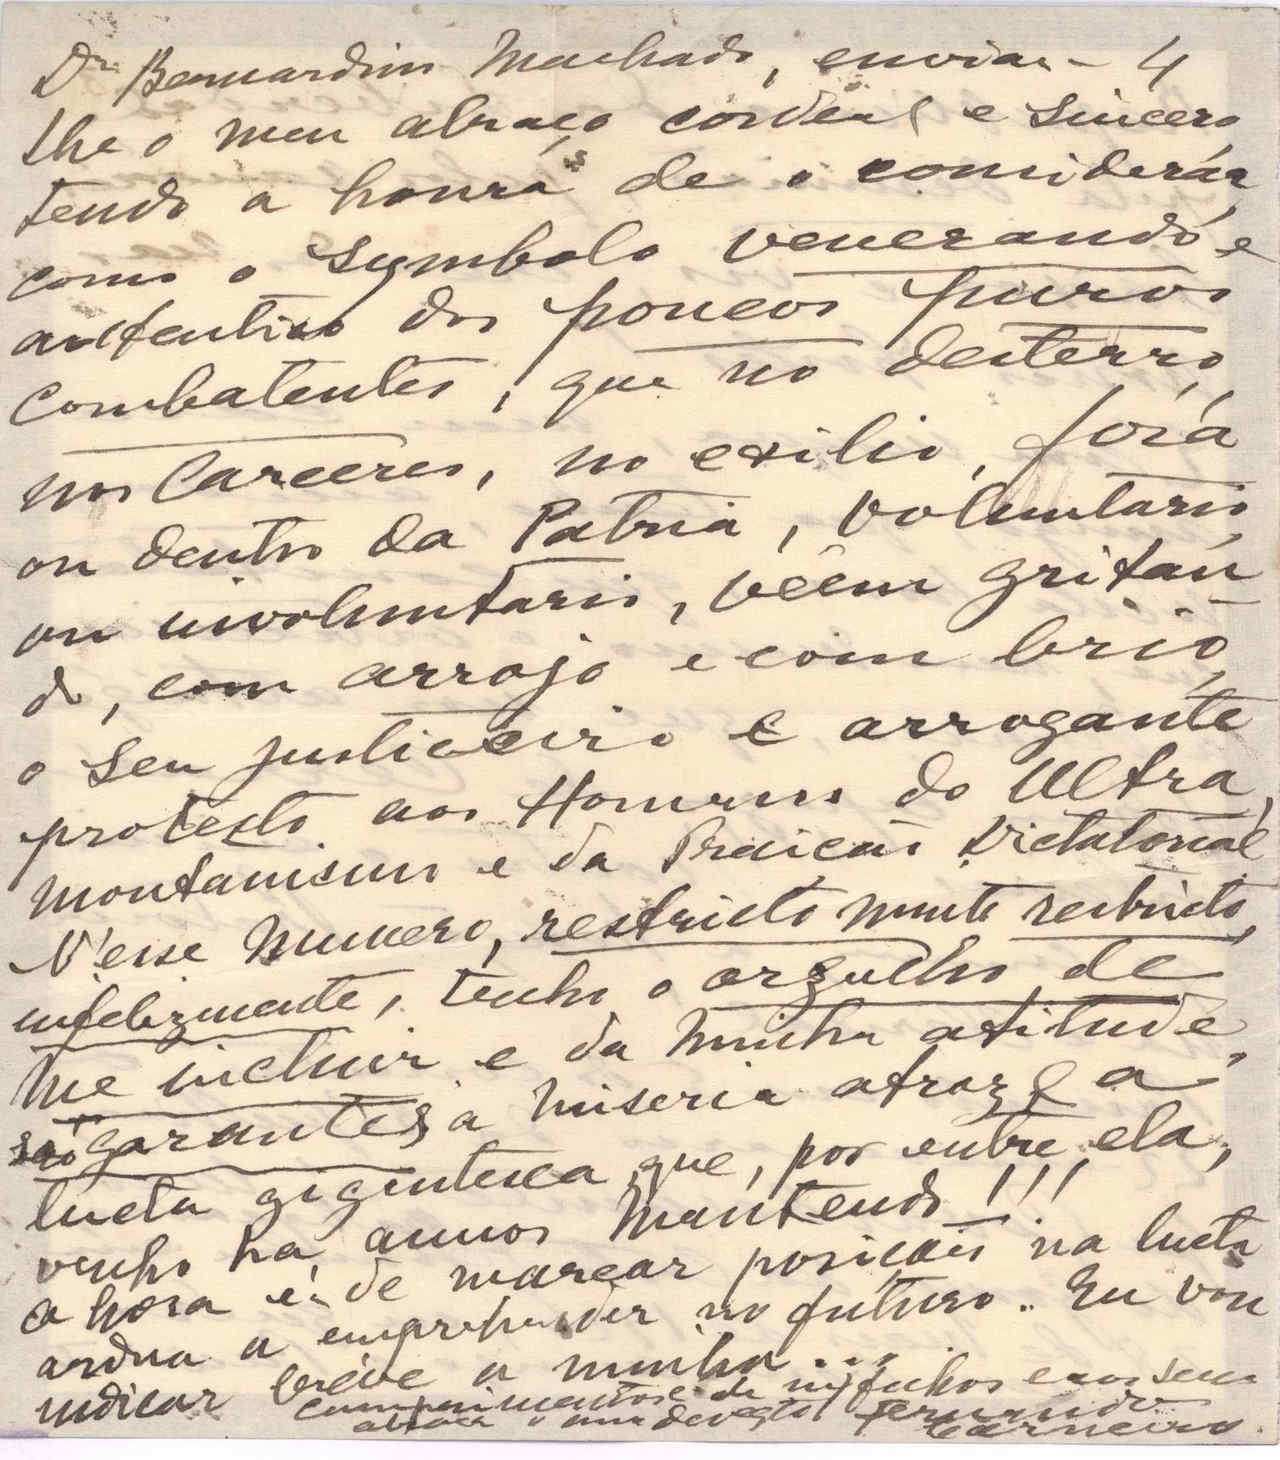 Dr Bernardino Machado, enviar- 4
lhe o meu abraço cordeal e sincero,
tendo a honra de o considerar,
como o symbolo venerando e
authentico dos poucos puros
combatentes, que no desterro,
nos Carceres, no exilio, fóra
ou dentro da Patria, voluntario
ou involuntario, vêem gritan
do, com arrojo e com brio,
o seu justiceiro e arrogante
protesto aos Homens do Ultra,
montanismo e da Traição Dictatorial
N'esse Numero, restricto muito restricto,
infelizmente, tenho o orgulho de
me incluir e da minha atitude,
são garantes a miseria atroz e a
lucta gigantesca que, por entre ela,
venho ha annos mantendo!!!
a hora é de marcar posição na lucta
ardua a emprehender no futuro.. Eu vou
indicar breve a minha...
cumprimentos de m/ filhos e aos seus
abraça o mm devoto Fernando
Carneiro